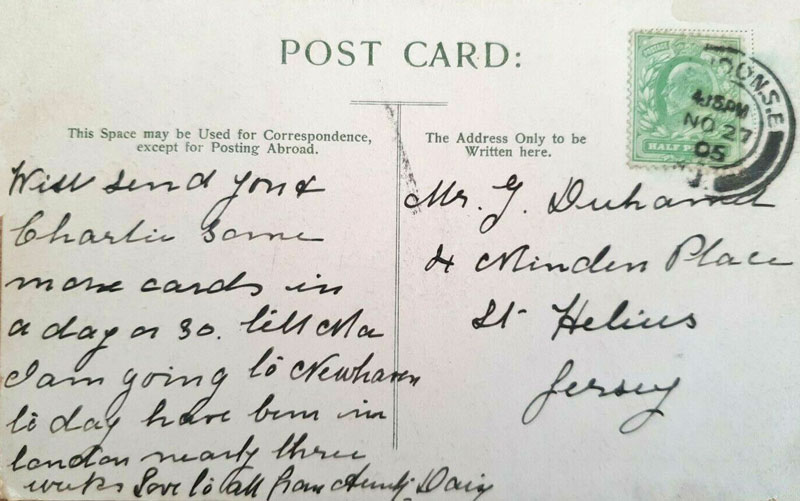 POST CARD:
This Space may be Used for Correspondence,
except for Posting Abroad.
The Address Only to be
Written here.
HALF P
ON.S.E
4.15PM
NO 27
05
Will send you &
Charlie some
more cards in
a day or so. tell Ma
I am going to Newhaven
to day have been in
london nearly three
weeks love to all from Aunty Daisy
Mr. G. Duhamel
4 Minden Place
St Heliers
Jersey